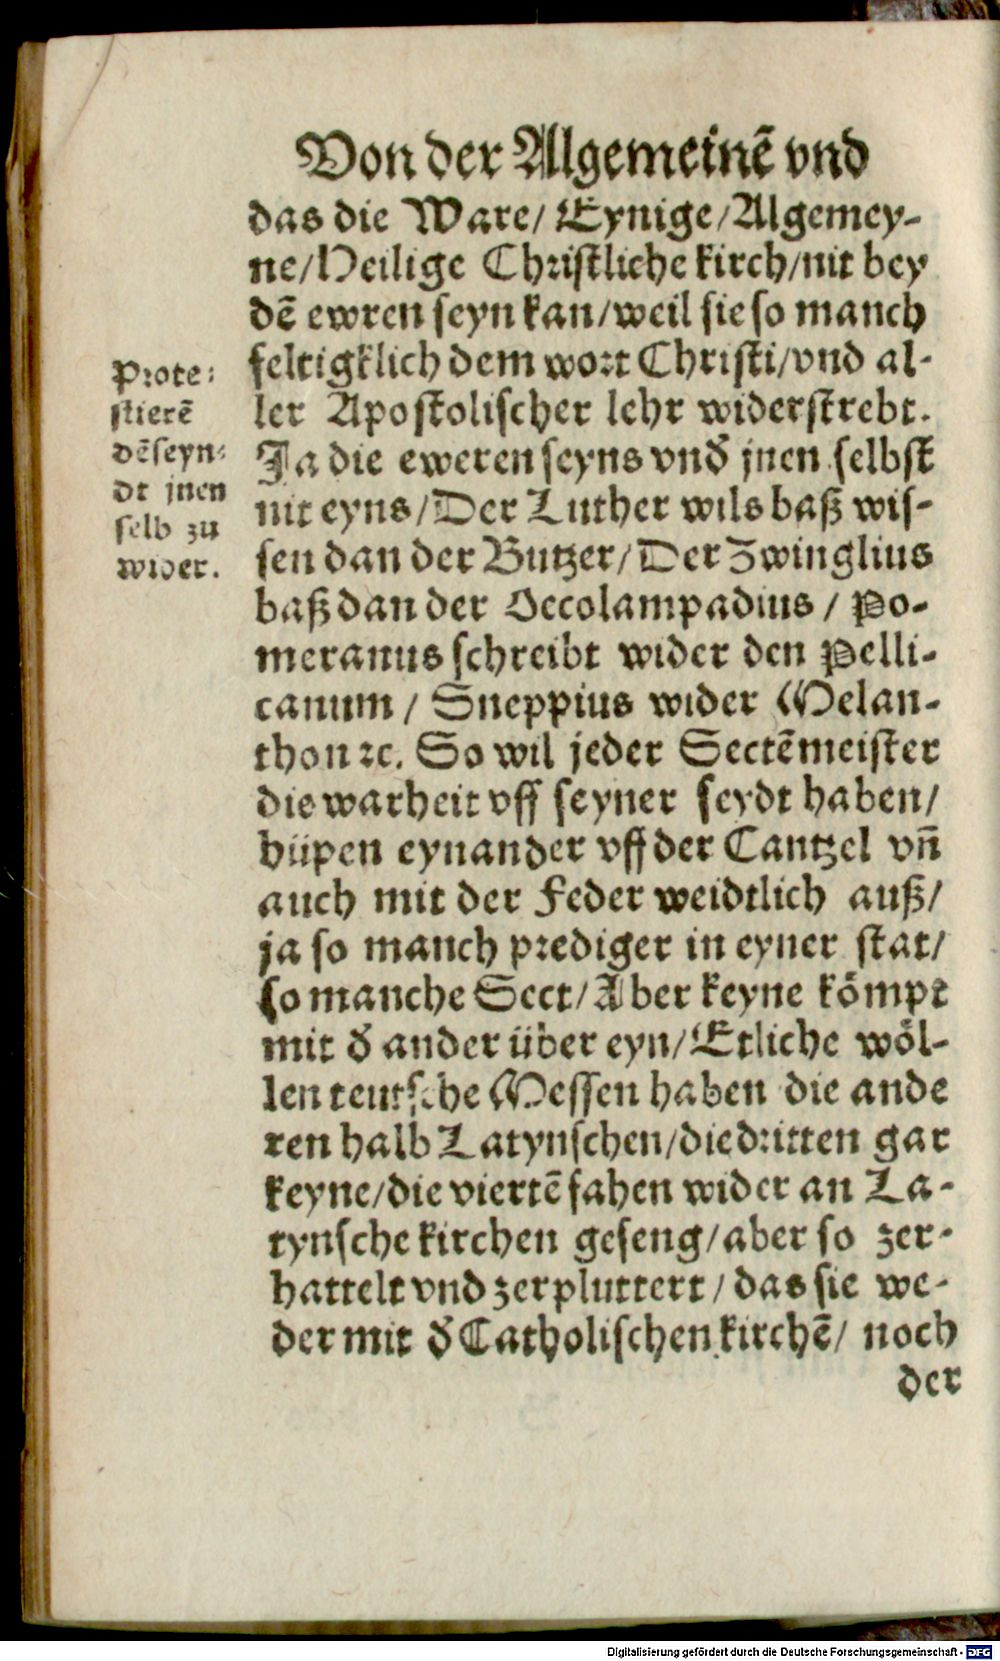 Von der Allgemeinē vnd
das die Ware/ Eynige/Algemey-
ne/Heilige Christliche kirch/nit bey
dē ewren seyn kan/weil sie so manch
feltigklich dem wort Christi/vnd al-
ler Apostolischer lehr widerstrebt.
Ja die eweren seyns vnd̕ jnen selbst
nit eyns/Der Luther wils baß wis-
sen dan der Butzer/Der Zwinglius
baß dan der Oecolampadius / Po-
meranus schreibt wider den Pelli-
canum / Sneppius wider Melan-
thon ꝛc. So wil jeder Sectēmeister
die warheit vff seyner seydt haben/
hüpen eynander vff der Cantzel vn̄
auch mit der Feder weidtlich auß/
ja so manch prediger in eyner stat/
so manche Sect/Aber keyne kömpt
mit d̕ ander über eyn/Etliche wöl-
len teutsche Messen haben die ande
ren halb Latynschen/die dritten gar
keyne/die viertē fahen wider an La-
tynsche kirchen geseng/aber so zer-
hattelt vnd zerpluttert/das sie we-
der mit d̕ Catholischen kirchē/ noch
der
Prote-
stierē
dē seyn-
dt jnen
selb zu
wider.
Digitalisierung gefördert durch die Deutsche Forschungsgemeinschaft - DFG